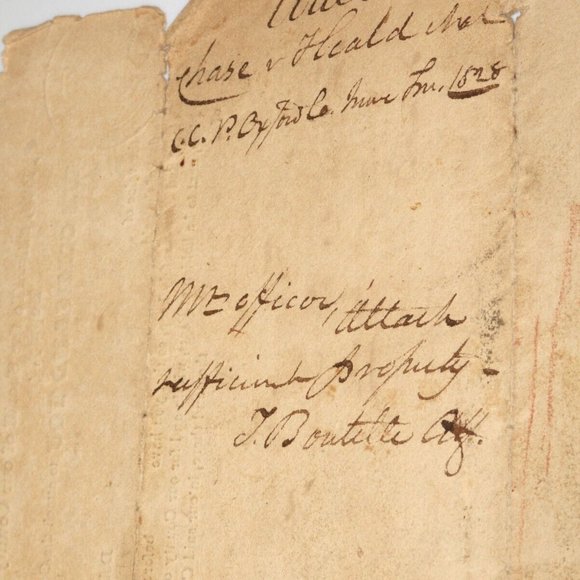 Chase & Heald
C.C.P. Oxford Co. Term, 1828
Mr officer, Attach
sufficient property -
T. Boutelle Att.